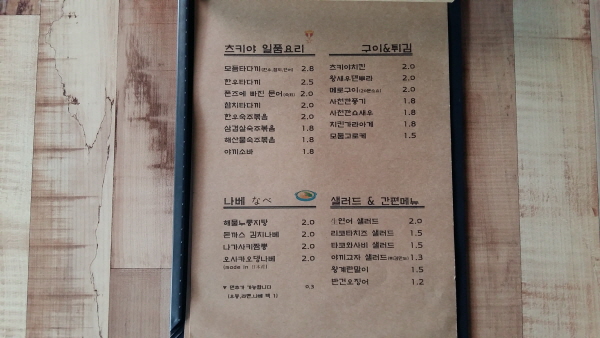 츠키야 일품요리
모듬타다끼 2.8
한우타다끼 2.5
폰즈에 빠진 문어 2.0
참치타다끼 2.0
한우숙주볶음 2.0
삼겹살숙주볶음 1.8
해산물숙주볶음 1.8
야끼소바 1.8
구이&튀김
츠키야치킨 2.0
왕새우덴뿌라 2.0
메로구이 2.0
사천깐풍기 1.8
사천깐쇼새우 1.8
치킨가라아게 1.8
모듬고로케 1.5
나베 なべ
해물누룽지탕 2.0
돈까스 김치나베 2.0
나가사키짬뽕 2.0
오사카오뎅나베 2.0
(made in 日本産)
▼ 면추가 가능합니다 0.3
(우동,라면,나베 택 1)
샐러드 & 간편메뉴
生연어 샐러드 2.0
리코타치즈 샐러드 1.5
타코와사비 샐러드 1.5
야끼교자 샐러드 1.3
왕계란말이 1.5
반건오징어 1.2